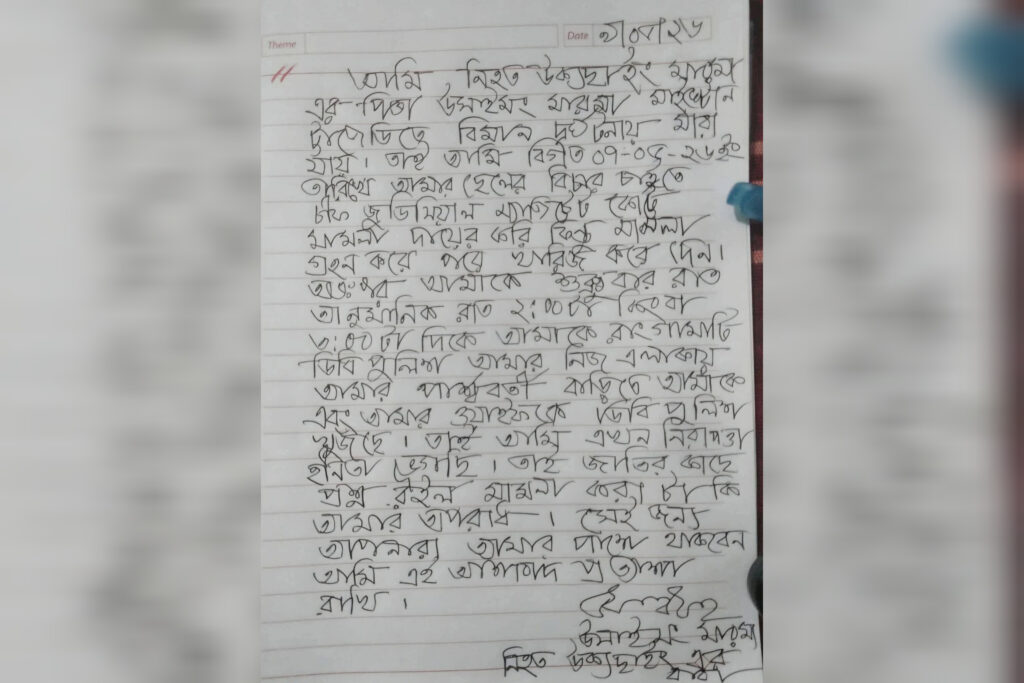 Theme
Date
আমি নিহত উক্যছাইং মারমা
এর পিতা উসাইমং মারমা মাইলস্টোন
ট্রাজেডিতে বিমান দুর্ঘটনায় মারা
যায়। তাই আমি বিগত ০৭-০৫-২৬ইং
তারিখে আমার ছেলের বিচার চাইতে
চীফ জুডিসিয়াল ম্যাজিট্রেট কোর্টে
মামলা দায়ের করি কিন্তু মামলা
গ্রহন করে পরে খারিজ করে দেন।
অতঃপর আমাকে শুক্রবার রাত
আনুমানিক রাত ২:০০টা কিংবা
৩:০০টা দিকে আমাকে রাংগামাটি
ডিবি পুলিশ আমার নিজ এলাকায়
আমার পার্শ্ববর্তী বাড়িতে আমাকে
এবং আমার ওয়াইফকে ডিবি পুলিশ
খুজছে। তাই আমি এখন নিরাপত্তা
হীনতা ভোগছি। তাই জাতির কাছে
প্রশ্ন রইল মামলা করা টা কি
আমার অপরাধ। সেই জন্য
আপনারা আমার পাশে থাকবেন
আমি এই আশাবাদ প্রত্যাশা
রাখি।
উসাইমং মারমা
নিহত উক্যছাইং এর
বাবা